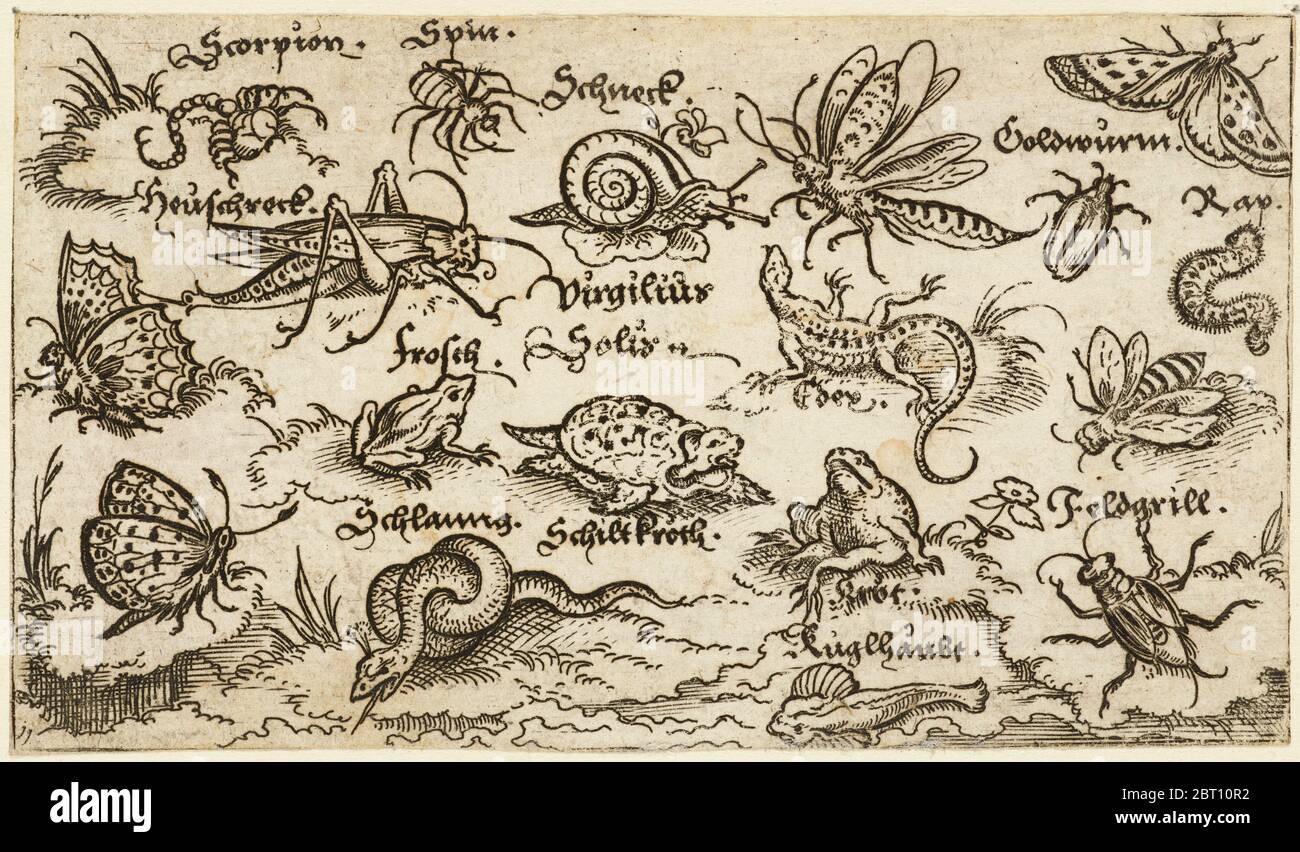 Scorpion.
Spin.
Schneck.
Goldwurm.
Heuschreck.
Rap.
Virgilius
Solis
frosch.
Edex.
Schlanng.
Schiltkroth.
Feldgrill.
Krot.
Kuglhaubt.
11
alamy
Image ID: 2BT10R2
www.alamy.com